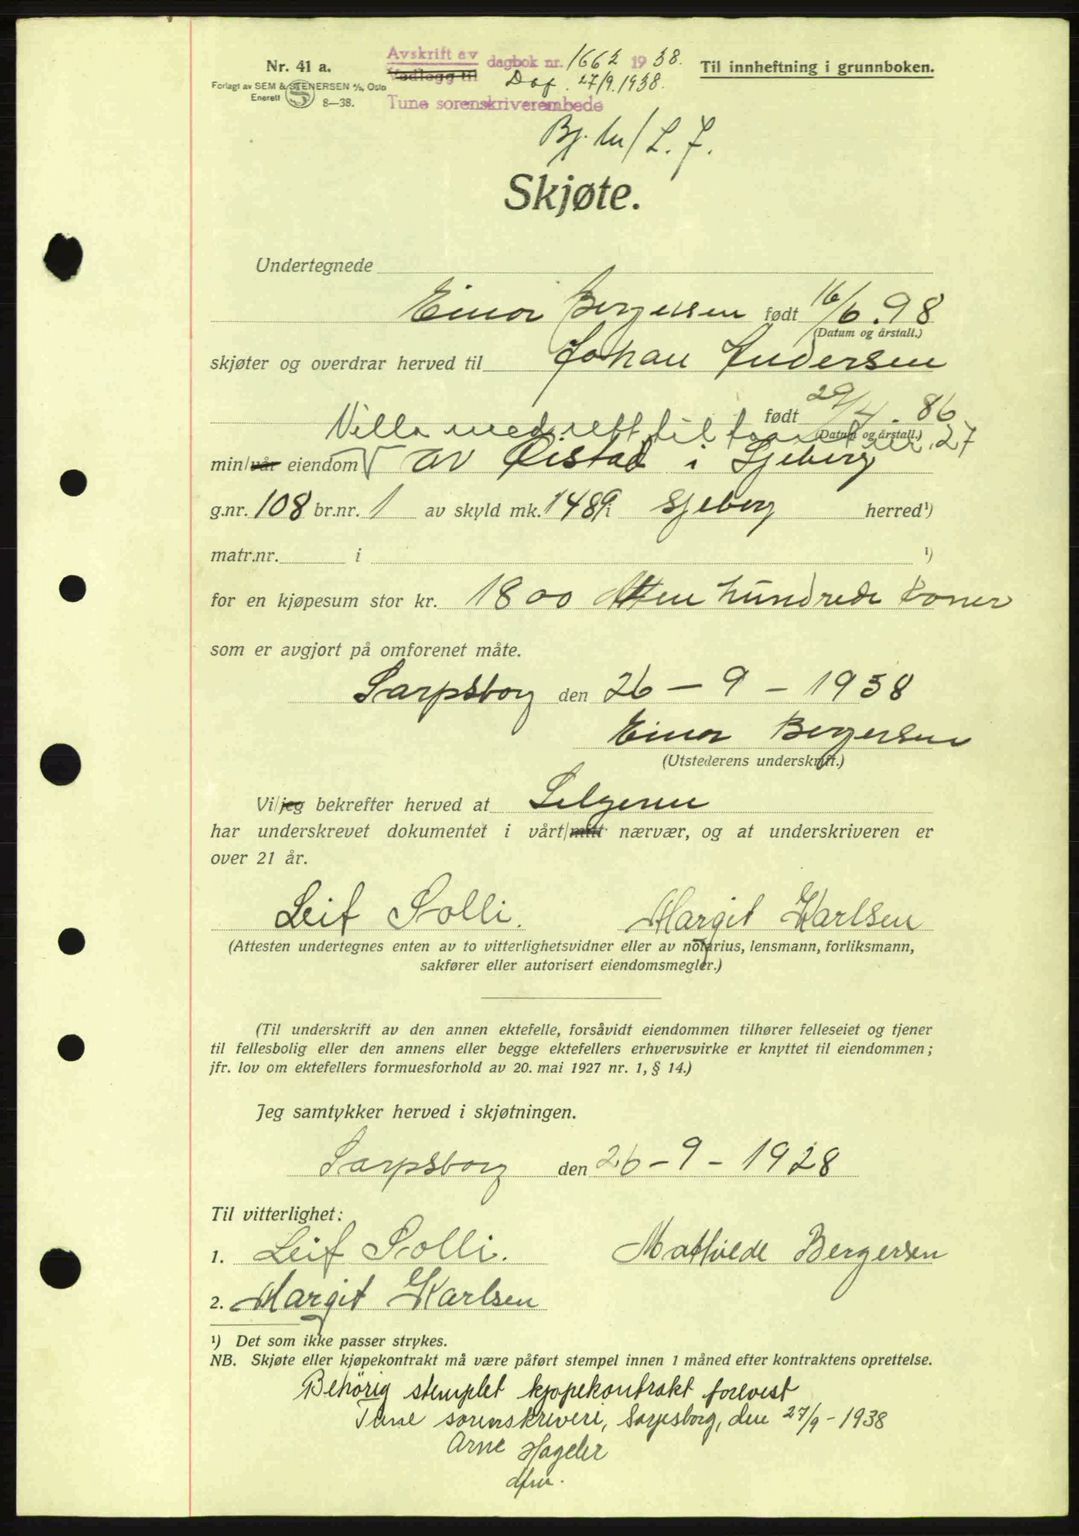 Nr. 41 a.
Forlagt av SEM & STENERSEN A/S, Oslo
Enerett 8—38.
Avskrift av
Vedlegg til dagbok nr. 1662 1938.
Daf. 27/9.1938.
Tune sorenskriverembede
Til innheftning i grunnboken.
Skjøte.
Undertegnede
Einar Bergersen født 16/6.98
(Datum og årstall.)
skjøter og overdrar herved til Johan Andersen
født 29/4.86
(Datum og årstall.)
Villa med rett til tomt nr. 27
min/vår eiendom av Øistad i Skjeberg
g.nr. 108 br.nr. 1 av skyld mk. 1489 i Skjeberg herred¹)
matr.nr. i ¹)
for en kjøpesum stor kr. 1800 Atten hundrede kroner
som er avgjort på omforenet måte.
Sarpsborg den 26 - 9 - 1938
Einar Bergersen
(Utstederens underskrift.)
Vi/jeg bekrefter herved at Selgeren
har underskrevet dokumentet i vårt/mitt nærvær, og at underskriveren er
over 21 år.
Leif Solli. Margit Karlsen
(Attesten undertegnes enten av to vitterlighetsvidner eller av notarius, lensmann, forliksmann,
sakfører eller autorisert eiendomsmegler.)
(Til underskrift av den annen ektefelle, forsåvidt eiendommen tilhører felleseiet og tjener
til fellesbolig eller den annens eller begge ektefellers erhvervsvirke er knyttet til eiendommen;
jfr. lov om ektefellers formuesforhold av 20. mai 1927 nr. 1, § 14.)
Jeg samtykker herved i skjøtningen.
Sarpsborg den 26 - 9 - 1928
Til vitterlighet:
1. Leif Solli. Mathilde Bergersen
2. Margit Karlsen
¹) Det som ikke passer strykes.
NB. Skjøte eller kjøpekontrakt må være påført stempel innen 1 måned efter kontraktens oprettelse.
Behörig stemplet kjøpekontrakt forevist
Tune sorenskriveri, Sarpsborg, den 27/9 - 1938
Arne Hageler
dfm.